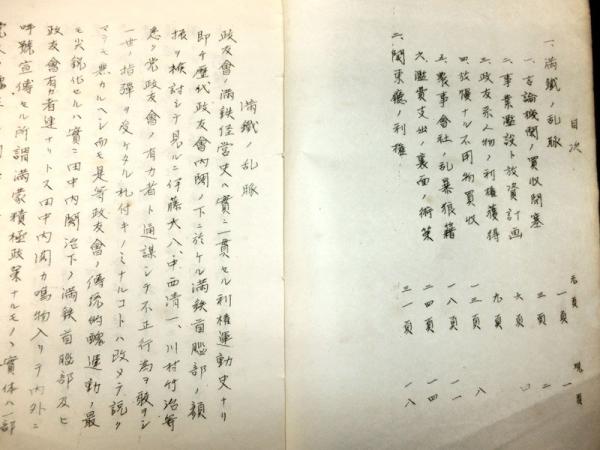 目次
一、満鉄ノ乱脈
一、言論機関ノ買収閉塞 三頁 二
二、事業濫設ト放資計画 六頁 四
三、政友系人物ノ利権獲得 九頁
四、放漫ナル不用物買収 一三頁 八
五、農事会社ノ乱暴狼藉 一八頁 一一
六、濫費支出ノ裏面ノ術策 二四頁 一四
二、関東庁ノ利権 三一頁 一八
満鐵ノ乱脈
政友會ノ満鉄経営史ハ實ニ一貫セル利権運動史ナリ
即チ歴代政友會内閣ノ下ニ於ケル満鉄首脳部ノ顔
振ヲ検討シテ見ルニ伊藤大八、中西清一、川村竹治等
悉ク党政友會ノ有力者ト通謀シテ不正行為ヲ敢ヲシ
一世ノ指弾ヲ受ケタル札付キノミナルコトハ改メテ説ク
マテモ無カルヘシ而モ是等政友會ノ傳統的醜運動ノ最
モ尖鋭化セルハ實ニ田中内閣治下ノ満鉄首脳部及ヒ
政友會有力者連ナリトス田中内閣カ鳴物入リテ内外ニ
呼號宣傳セル所謂満蒙積極政策ナルモノハ實体ハ一部